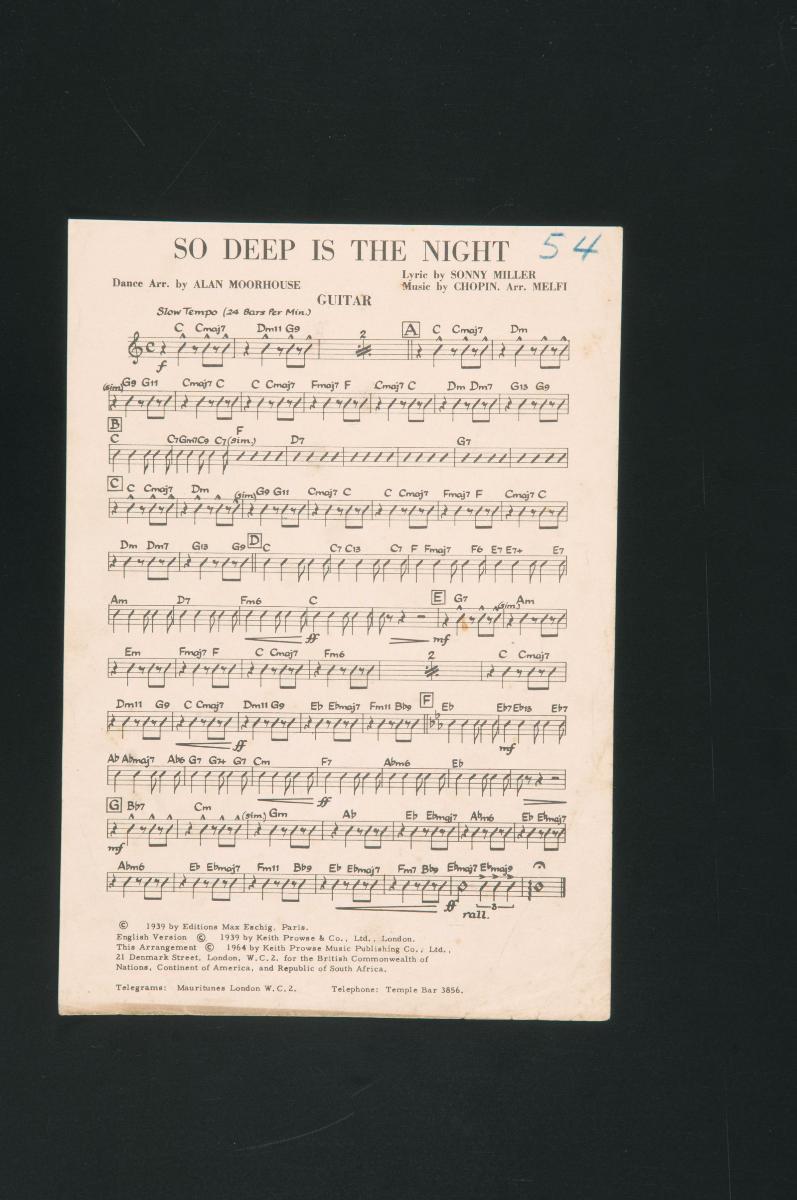 SO DEEP IS THE NIGHT 54
Dance Arr. by ALAN MOORHOUSE
Lyric by SONNY MILLER
Music by CHOPIN. Arr. MELFI
GUITAR
Slow Tempo (24 Bars Per Min.)
C Cmaj7 Dm11 G9 2 A C Cmaj7 Dm
f
(sim) G9 G11 Cmaj7 C C Cmaj7 Fmaj7 F Cmaj7 C Dm Dm7 G13 G9
B
C C7 Gm7 C9 C7 (sim.) F D7 G7
C C Cmaj7 Dm (sim) G9 G11 Cmaj7 C C Cmaj7 Fmaj7 F Cmaj7 C
Dm Dm7 G13 G9 D C C7 C13 C7 F Fmaj7 F6 E7 E7+ E7
Am D7 Fm6 C E G7 (sim.) Am
ff mf
Em Fmaj7 F C Cmaj7 Fm6 2 C Cmaj7
Dm11 G9 C Cmaj7 Dm11 G9 Eb Ebmaj7 Fm11 Bb9 F Eb Eb7 Eb13 Eb7
ff mf
Ab Abmaj7 Ab6 G7 G7+ G7 Cm F7 Abm6 Eb
ff
G Bb7 Cm (sim.) Gm Ab Eb Ebmaj7 Abm6 Eb Ebmaj7
mf
Abm6 Eb Ebmaj7 Fm11 Bb9 Eb Ebmaj7 Fm7 Bb9 Ebmaj7 Ebmaj9
ff rall. 3
© 1939 by Editions Max Eschig, Paris.
English Version © 1939 by Keith Prowse & Co., Ltd., London.
This Arrangement © 1964 by Keith Prowse Music Publishing Co., Ltd.,
21 Denmark Street, London, W.C.2. for the British Commonwealth of
Nations, Continent of America, and Republic of South Africa.
Telegrams: Mauritunes London W.C.2. Telephone: Temple Bar 3856.